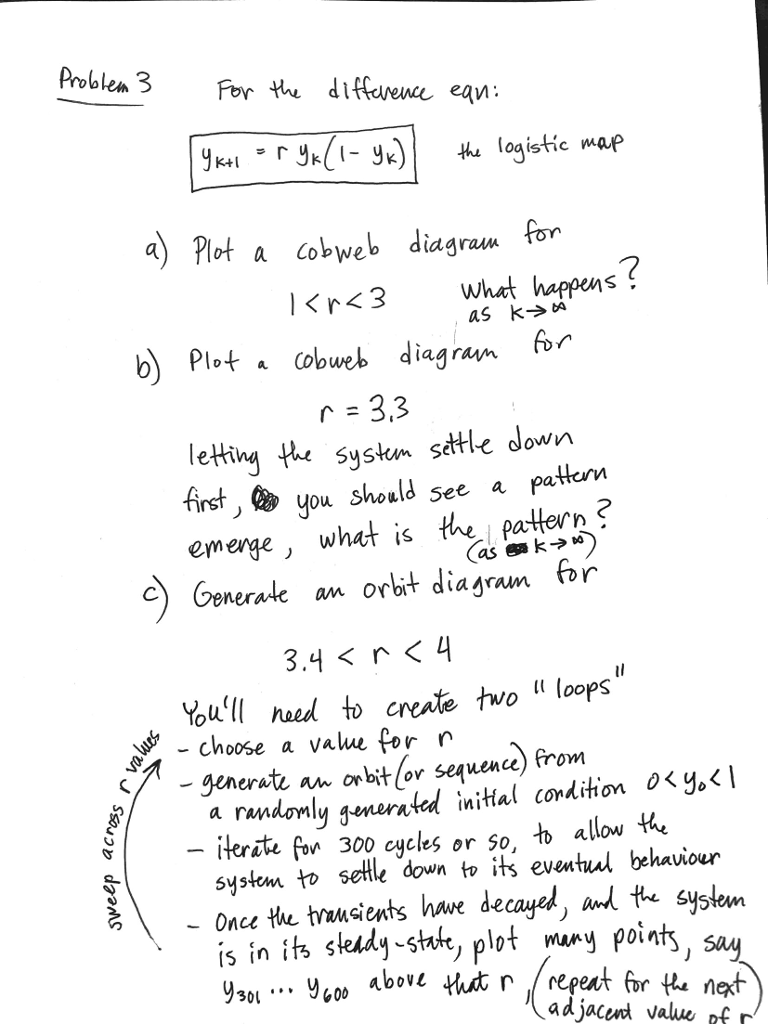 Problem 3 For the difference eqn:
y_{k+1} = r y_k(1 - y_k) the logistic map
a) Plot a cobweb diagram for
1 < r < 3 What happens?
as k → ∞
b) Plot a cobweb diagram for
r = 3.3
letting the system settle down
first, you should see a pattern
emerge, what is the pattern?
(as k → ∞)
c) Generate an orbit diagram for
3.4 < r < 4
You'll need to create two "loops"
- choose a value for r
- generate an orbit (or sequence) from
a randomly generated initial condition 0 < y_0 < 1
- iterate for 300 cycles or so, to allow the
system to settle down to its eventual behaviour
- Once the transients have decayed, and the system
is in its steady-state, plot many points, say
y_{301} ... y_{600} above that r, (repeat for the next
adjacent value of r
sweep across r values